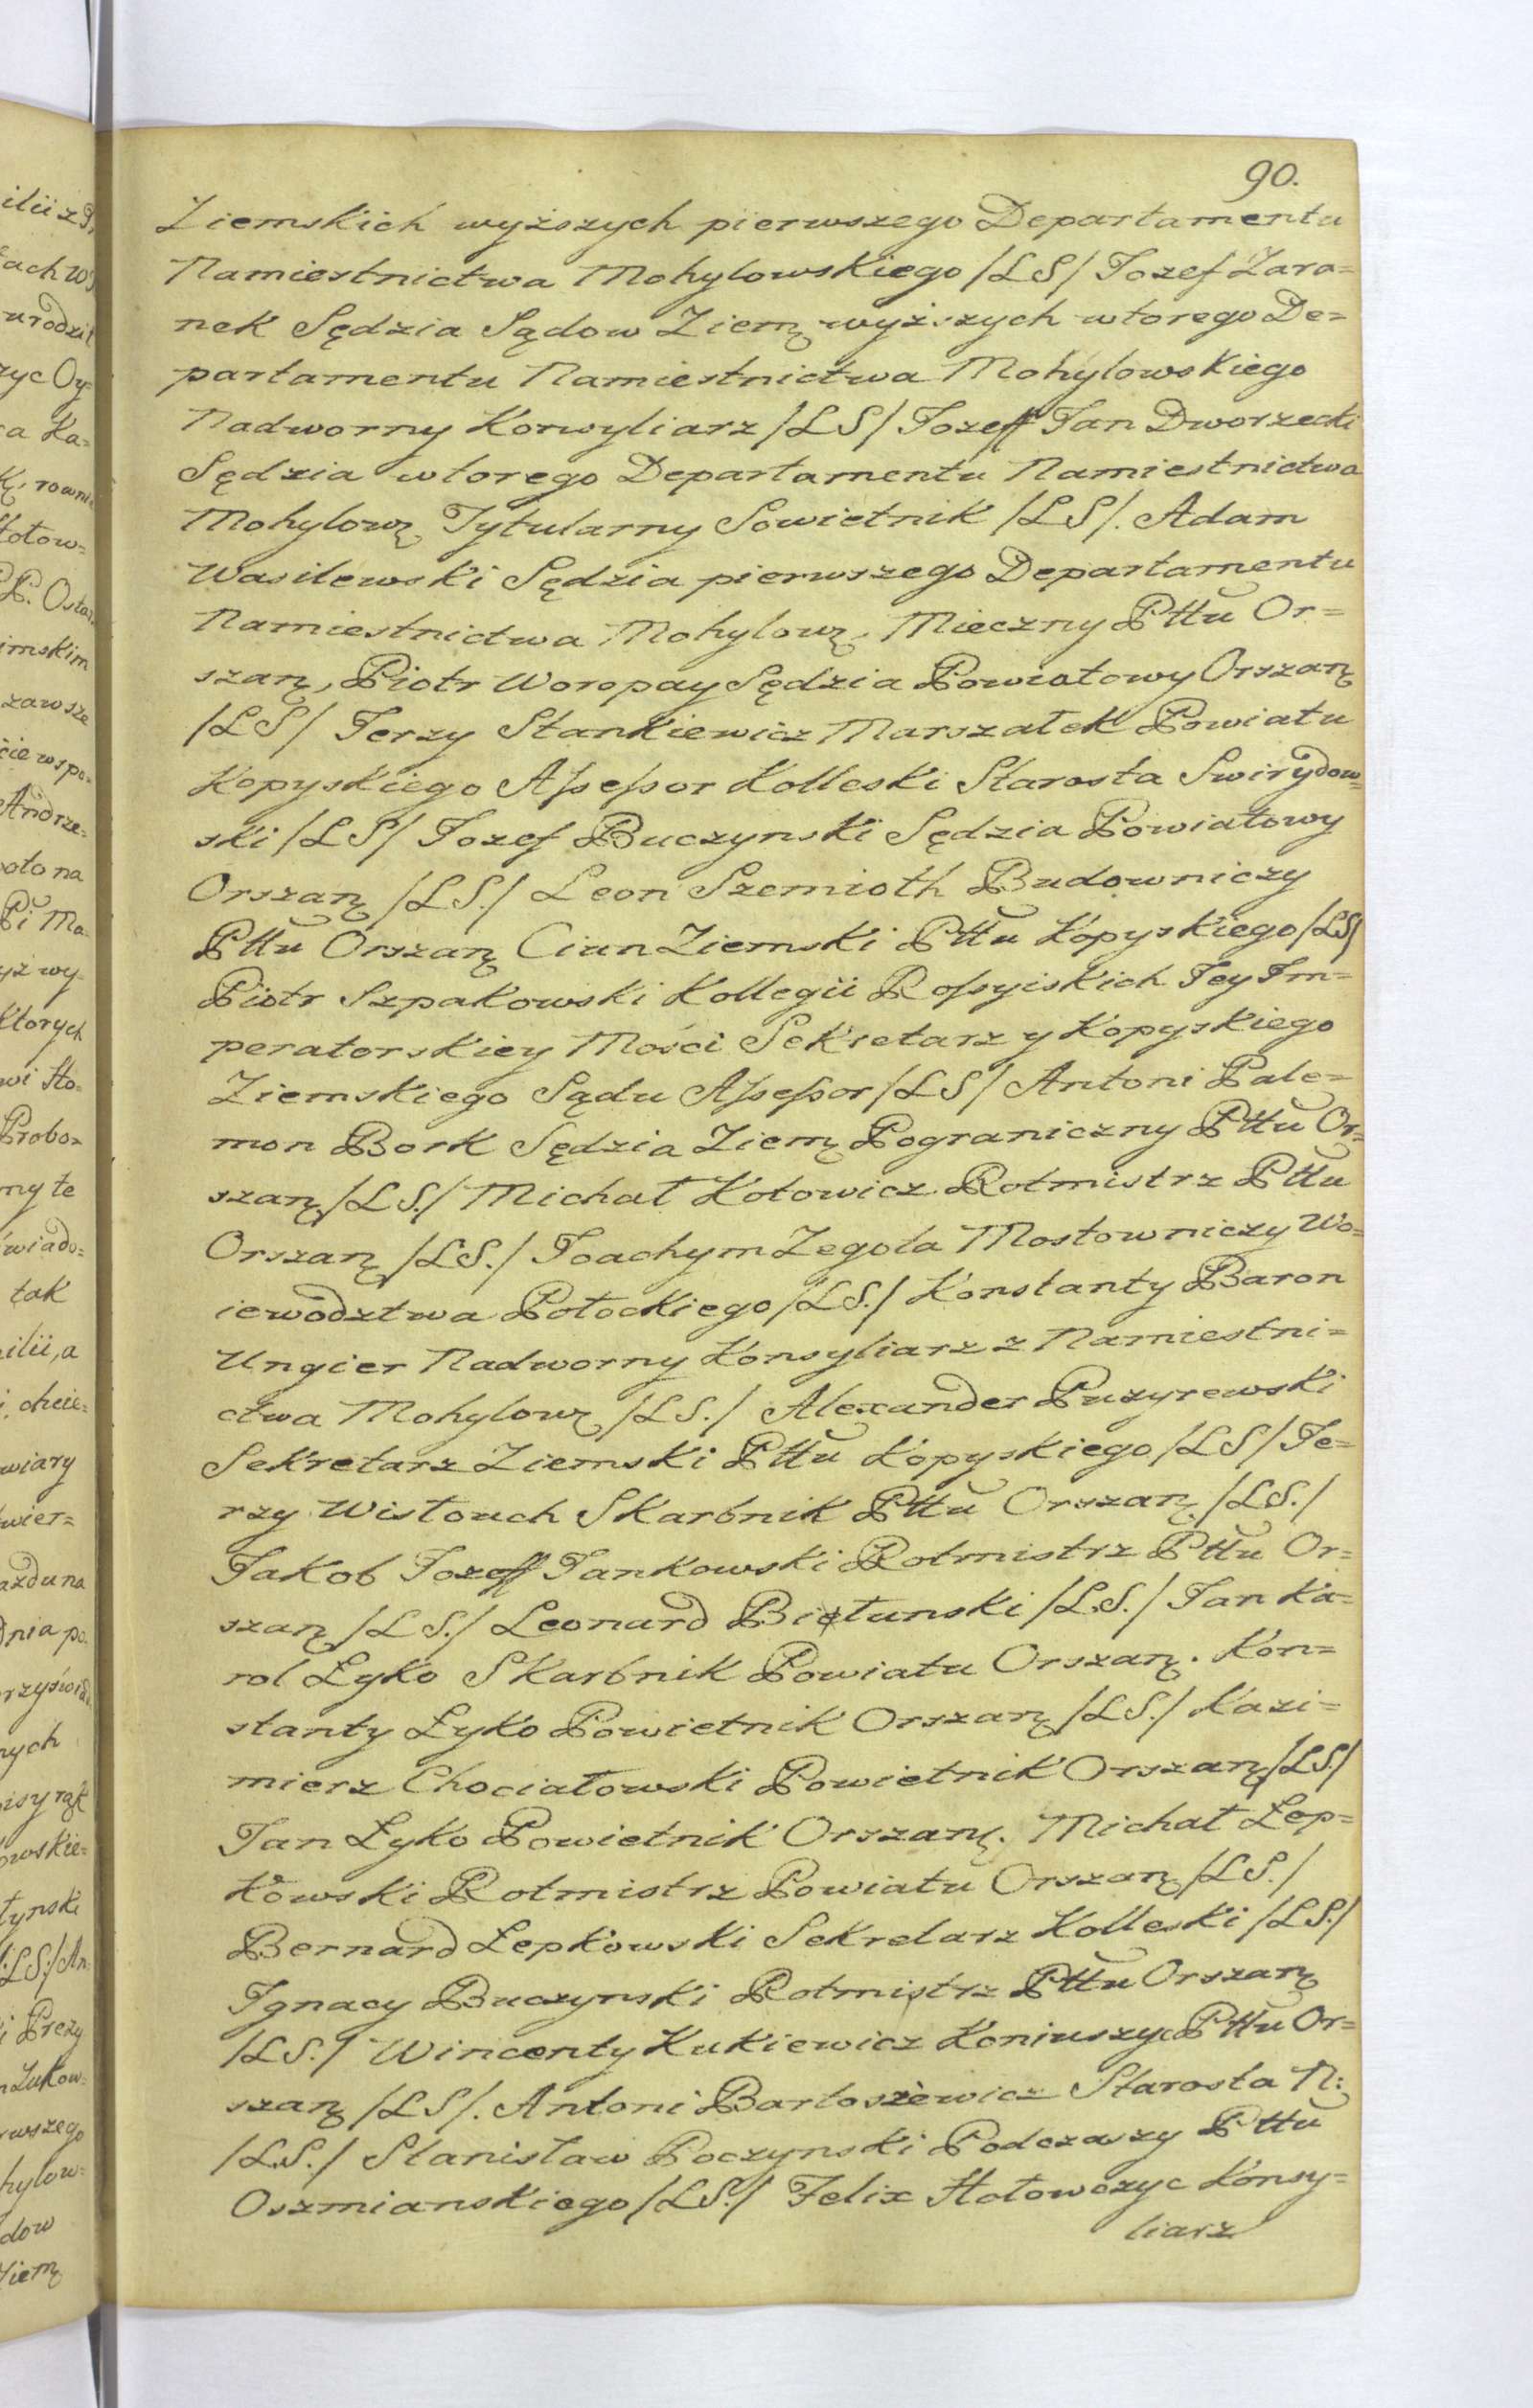 90.
Ziemskich wyższych pierwszego Departamentu
Namiestnictwa Mohylowskiego /LS/ Jozef Zara=
nek Sędzia Sądow Ziem: wyższych wtorego De=
partamentu Namiestnictwa Mohylowskiego
Nadworny Konsyliarz /LS/ Jozeff Jan Dworzecki
Sędzia wtorego Departamentu Namiestnictwa
Mohylow: Tytularny Sowietnik /LS/. Adam
Wasilewski Sędzia pierwszego Departamentu
Namiestnictwa Mohylow: Mieczny Pttu Or=
szan:, Piotr Woropay Sędzia Powiatowy Orszan:
/LS/ Jerzy Stankiewicz Marszałek Powiatu
Kopyskiego Assessor Kolleski Starosta Swirydow=
ski /LS/ Jozef Buczynski Sędzia Powiatowy
Orszan: /LS./ Leon Szemioth Budowniczy
Pttu Orszan: Ciun Ziemski Pttu Kopyskiego /LS/
Piotr Szpakowski Kollegii Rossyiskich Jey Im=
peratorskiey Mości Sekretarz y Kopyskiego
Ziemskiego Sądu Assessor /LS/ Antoni Pale=
mon Bork Sędzia Ziem: Pograniczny Pttu Or=
szan: /LS./ Michał Kotowicz Rotmistrz Pttu
Orszan: /LS./ Joachym Zegola Mostowniczy Wo=
iewodztwa Połockiego /LS./ Konstanty Baron
Ungier Nadworny Konsyliarz z Namiestni=
ctwa Mohylow: /LS./ Alexander Puzyrewski
Sekretarz Ziemski Pttu Kopyskiego /LS/ Je=
rzy Wistouch Skarbnik Pttu Orszan: /LS./
Jakob Jozeff Jankowski Rotmistrz Pttu Or=
szan: /LS./ Leonard Biełunski /LS./ Jan Ka=
rol Łyko Skarbnik Powiatu Orszan:. Kon=
stanty Łyko Powietnik Orszan: /LS./ Kazi=
mierz Chociatowski Powietnik Orszan: /LS./
Jan Łyko Powietnik Orszan:. Michał Łep=
kowski Rotmistrz Powiatu Orszan: /LS./
Bernard Łepkowski Sekretarz Kolleski /LS./
Ignacy Buczynski Rotmistrz Pttu Orszan:
/LS./ Wincenty Kukiewicz Koniuszy Pttu Or=
szan: /LS/. Antoni Bartoszewicz Starosta N:
/LS./ Stanisław Poczynski Podczaszy Pttu
Oszmianskiego /LS./ Felix Hołowczyc Konsy=
liarz